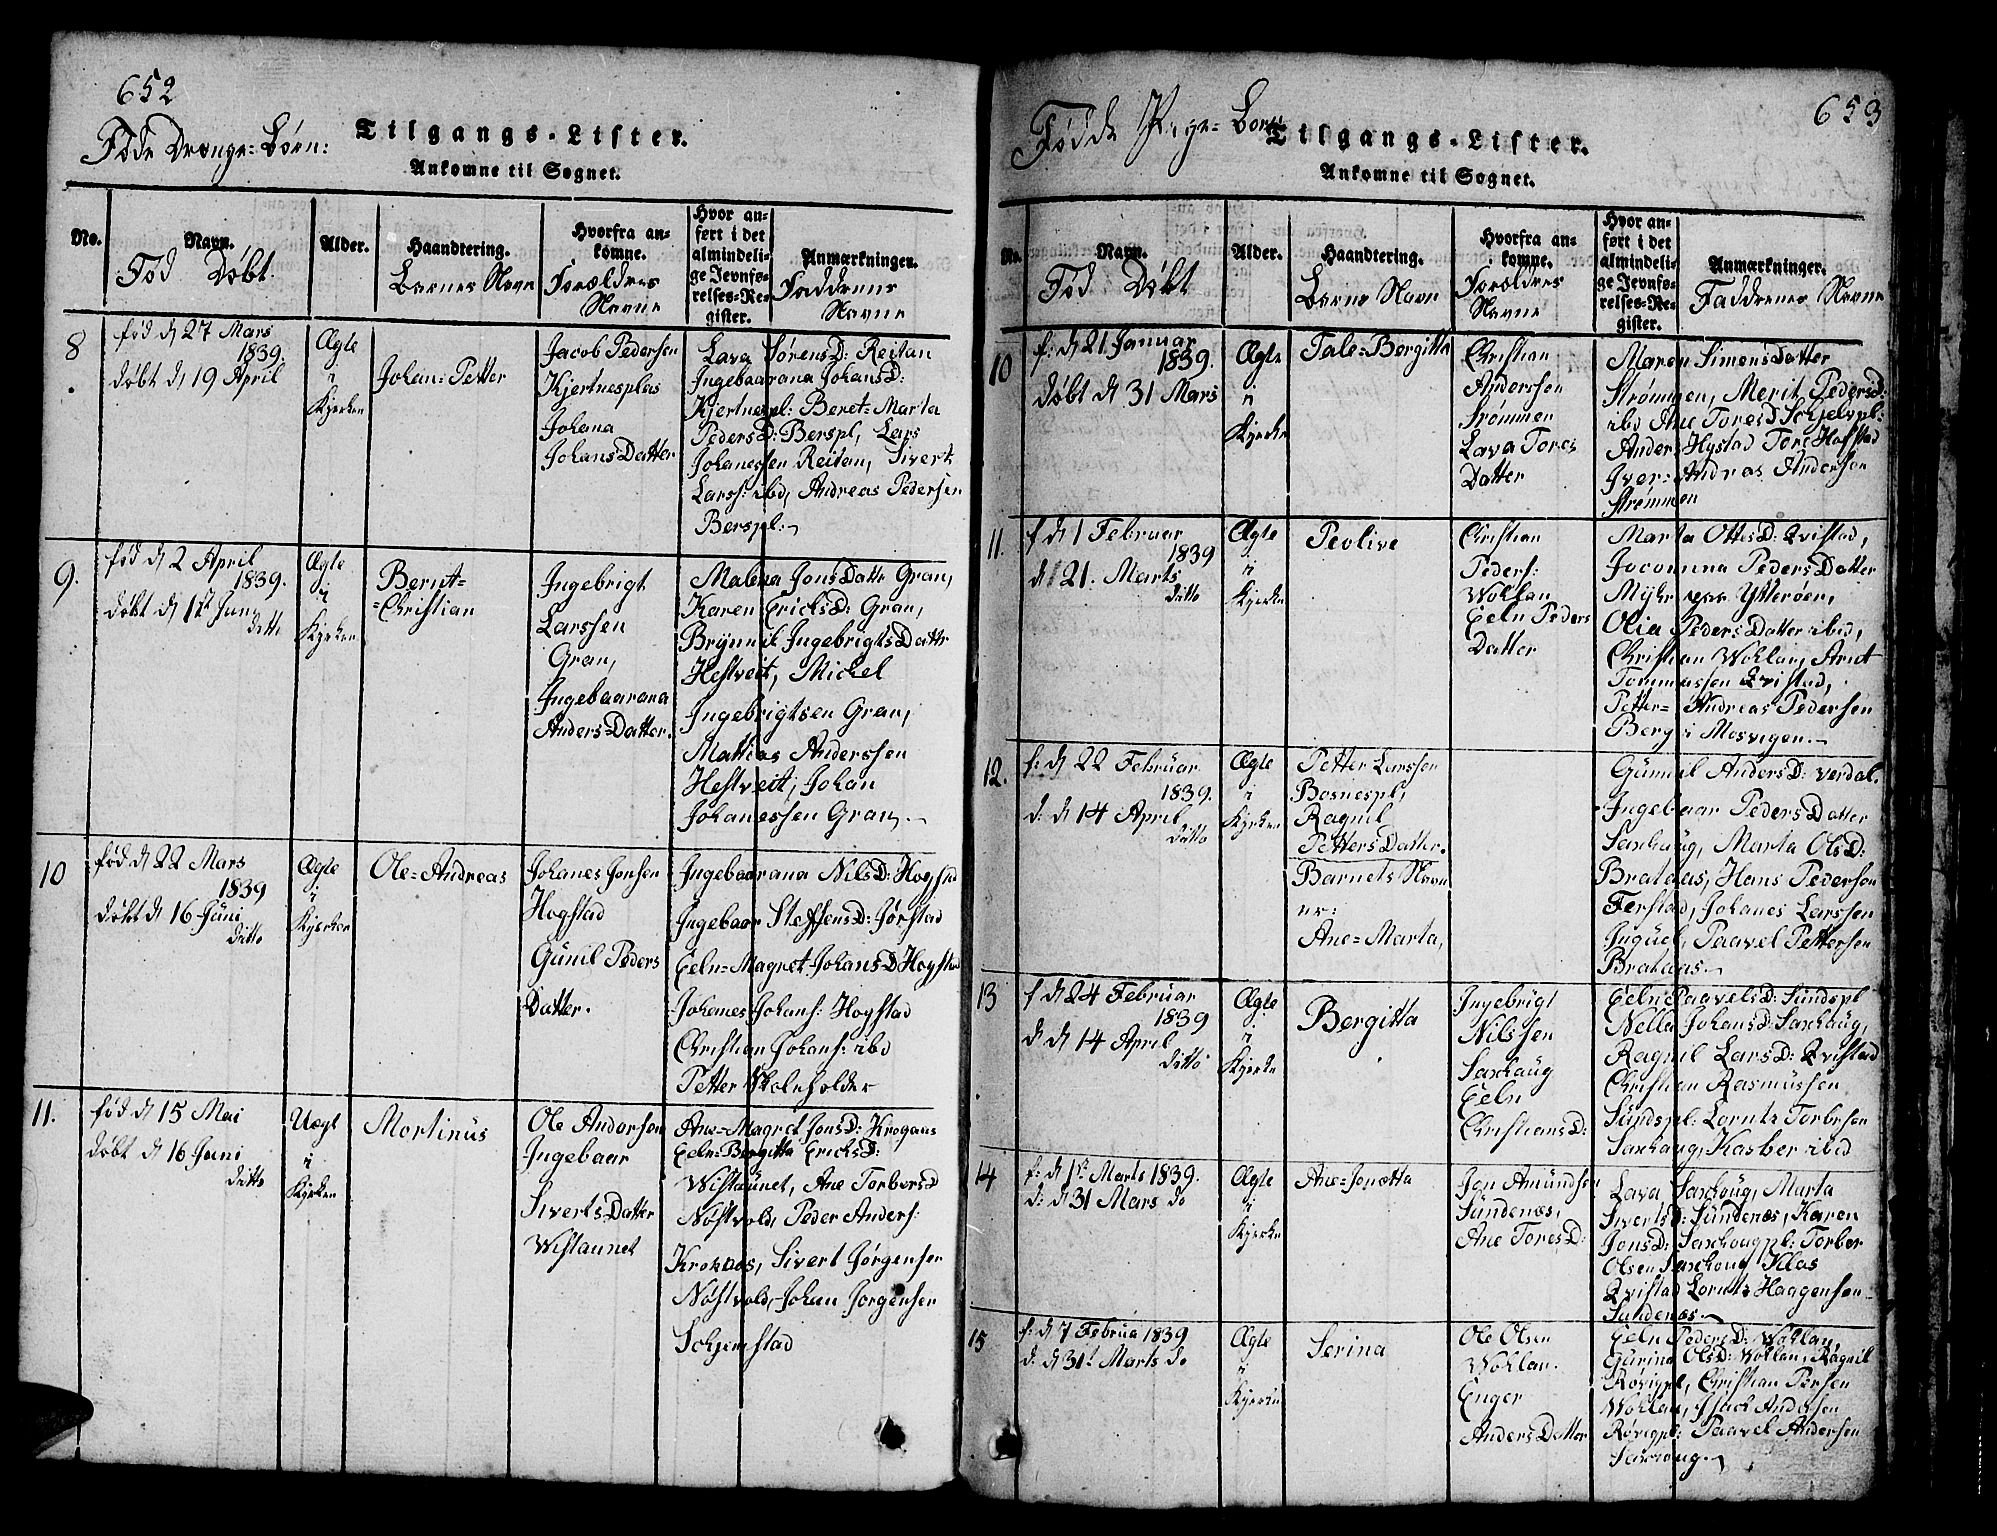 652
Føde Drenge-Børn:
Tilgangs-Lister.
Ankomne til Sognet.
No.
Navn.
Fød Døbt.
Alder.
Haandtering.
Barnes Navn
Hvorfra ankomne.
Forældres
Navne
Hvor an-
ført i det
almindeli-
ge Jevnfø-
relses-Re-
gister.
Anmærkninger.
Faddrenes
Navne
8
fød d 27 Mars
1839.
døbt d 19 April
Ægte
i
Kyrken
Johan-Petter
Jacob Pedersen
Kjertnesplas
Johana
JohansDatter
Lava SørensD: Reitan
Ingebaarana JohansD:
Kjertnespl: Beret-Marta
PedersD: Berspl, Lars
Johanessen Reitan, Sivert
Larss: ibd, Andreas Pedersen
Berspl.
9.
fød d 2 April
1839.
døbt d 1st Juni
ditto
Ægte
i
Kyrken
Bernt-
-Christian
Ingebrigt
Larssen
Gran,
Ingebaarana
Anders-Datter.
Malena JonsDatter Gran,
Karen EricksD: Gran,
Brynnil IngebrigtsDatter
Hestveit, Mickel
Ingebrigtsen Gran,
Mathias Anderssen
Hestveit, Johan
Johanessen Gran.
10
fød d 22 Mars
1839
døbt d 16 Juni
ditto
Ægte
i
Kyrken
Ole-Andreas
Johanes Jonsen
Hogstad
Gunil Peders
Datter.
Ingebaarana NilsD: Hogstad
Ingebaar SteffensD: Jørstad
Eeln-Magret JohansD Hogstad
Johanes Johans: Hogstad
Christian Johans: ibd
Petter Skoleholder
11.
fød d 15 Mai
døbt d 16 Juni
ditto
Uægt
i
Kyrken
Mortinus
Ole Andersen
Ingebaar
SivertsDatter
Wistaunet
Ane-Magret JonsD: Krogaas
Eeln-Bergitta EricksD:
Wistaunet, Ane TorbersD
Nøstvold, Peder Anders:
Krokaas, Sivert Jørgensen
Nøstvold, Johan Jørgensen
Schjemstad
653
Fødde Pige-Børn
Tilgangs-Lister.
Ankomne til Sognet.
No.
Navn.
Fød Døbt
Alder.
Haandtering.
Barns Navn
Hvorfra an-
komne.
Forældres
Navne
Hvor an-
ført i det
almindeli-
ge Jevnfø-
relses-Re-
gister.
Anmærkninger.
Faddrenes Navne
10
f: d 21 Januar
1839.
døbt d 31 Mars
Ægte
i
Kyrke
Tale-Bergitta
Christian
Anderssen
Strømmen
Lava Tores
Datter
Maren SimensDatter
Strømmen, Merit PedersD:
ibd Ane ToresD Schjelvpl:
Anders Hystad Tore Hofstad
Iver-Andreas Andersen
Strømmen
11.
f d 1 Februar
1839
d 21. Marts
ditto
Ægte
i
Kyrken
Peolive
Christian
Peders:
Wohlan
Eeln Peders
Datter
Marta OttesD: Qvistad,
Jacomina PedersDatter
Myhr paa Ytterøen,
Olia PedersDatter ibid,
Christian Wohlan, Arnt
Tommassen Qvistad,
Petter-Andreas Pedersen
Berg i Mosvigen.
12.
f: d 22 Februar
1839.
d: d 14 April
ditto
Ægte
i
Kyrken
Petter Larssen
Bosnespl,
Ragnil
PettersDatter.
Barnets Navn
er:
Ane-Marta,
Gunnil AndersD: Verdal.
Ingebaar PedersDatter
Saxhaug, Marta OlsD:
Brataas, Hans Pedersen
Ferstad, Johanes Larssen
Inguel, Paavel Pettersen
Brataas.
13
f d 24 Februar
1839
d d 14 April
ditto
Ægte
i
Kyrke
Bergitta
Ingebrigt
Nilssen
Saxhaug
Eeln
ChristiansD:
Eeln PaavelsD: Sundspl
Nella JohansD: Saxhaug,
Ragnil LarsD: Qvistad
Christian Rasmussen
Sundspl: Lornts Torbersen
Saxhaug, Kasber ibid
14
f: d 1st Marts 1839.
d: d 31 Mars do
Ægte
i
Kyrke
Ane-Jonetta
Jon Amundsen
Sundenæs,
Ane ToresD:
Lava Saxhoug, Marta
SivertsD: Sundenæs, Karen
JonsD: Saxhougpl: Torber
Olsen Saxhoug Klas
Qvistad Lornts Haggensen
Sundenæs
15
f: d 7 Februa 1839
d: d 31t Marts do
Ægte
i
Kyrken
Serina
Ole Olsen
Wohlan.
Enger
AndersDatter
Eeln PedersD: Wohlan,
Gurina OlsD: Wohlan, Ragnil
Røvigpl, Christian Persen
Wohlan, Isach Andersen
Røvigpl: Paavel Andersen
Saxhoug.